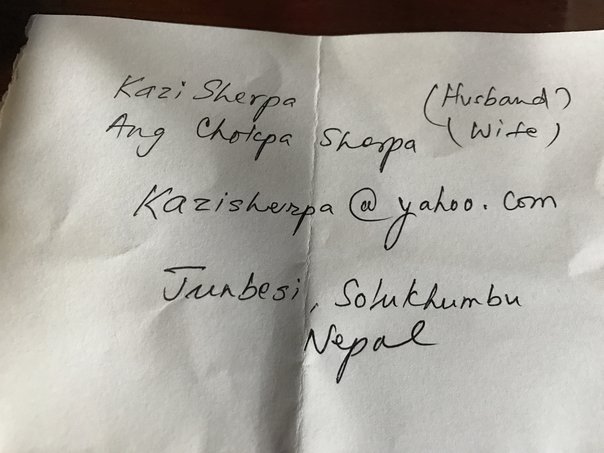 Kazi Sherpa (Husband)
Ang Chokpa Sherpa (Wife)
Kazisherpa@yahoo.com
Junbesi, Solukhumbu
Nepal